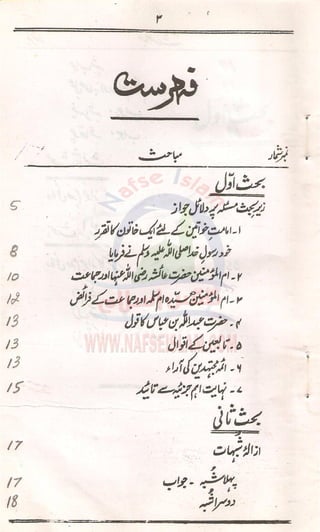 ۲
فہرست
نمبر شمار مباحث
بحث اوّل
زیر بحث مسئلہ پر دلائل جواز 5
۱- امامت خواتین کے لئے ایک خاتون کا تقرر
خود رسول خدا صلی اللہ علیہ وسلم نے فرمایا 8
۲- ام المؤمنین حضرت عائشہ رضی اللہ عنہا اور جماعت 10
۳- ام المؤمنین سیدہ ام سلمہ اور جماعت کے فرائض 12
۴- حضرت عبداللہ بن عباس کا قول 13
۵- تابعین کے اقوال 13
۶- ائمہ مجتہدین کی آراء 13
۷- نہایت اہم جزئیہ سے تائید 15
بحث ثانی
ازالۂ شبہات 17
پہلا شبہ - جواب 17
دوسرا شبہ 18
Nafse Islam
WWW.NAFSE